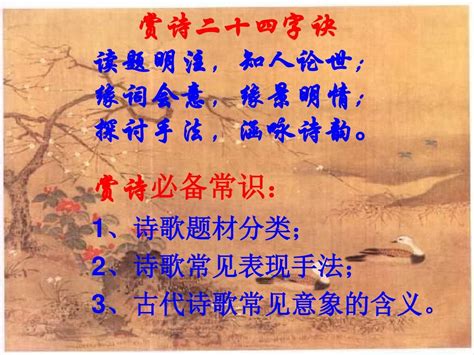 赏诗二十四字诀
读题明注，知人论世；
缘词会意，缘景明情；
探讨手法，涵咏诗韵。
赏诗必备常识：
1、诗歌题材分类；
2、诗歌常见表现手法；
3、古代诗歌常见意象的含义。